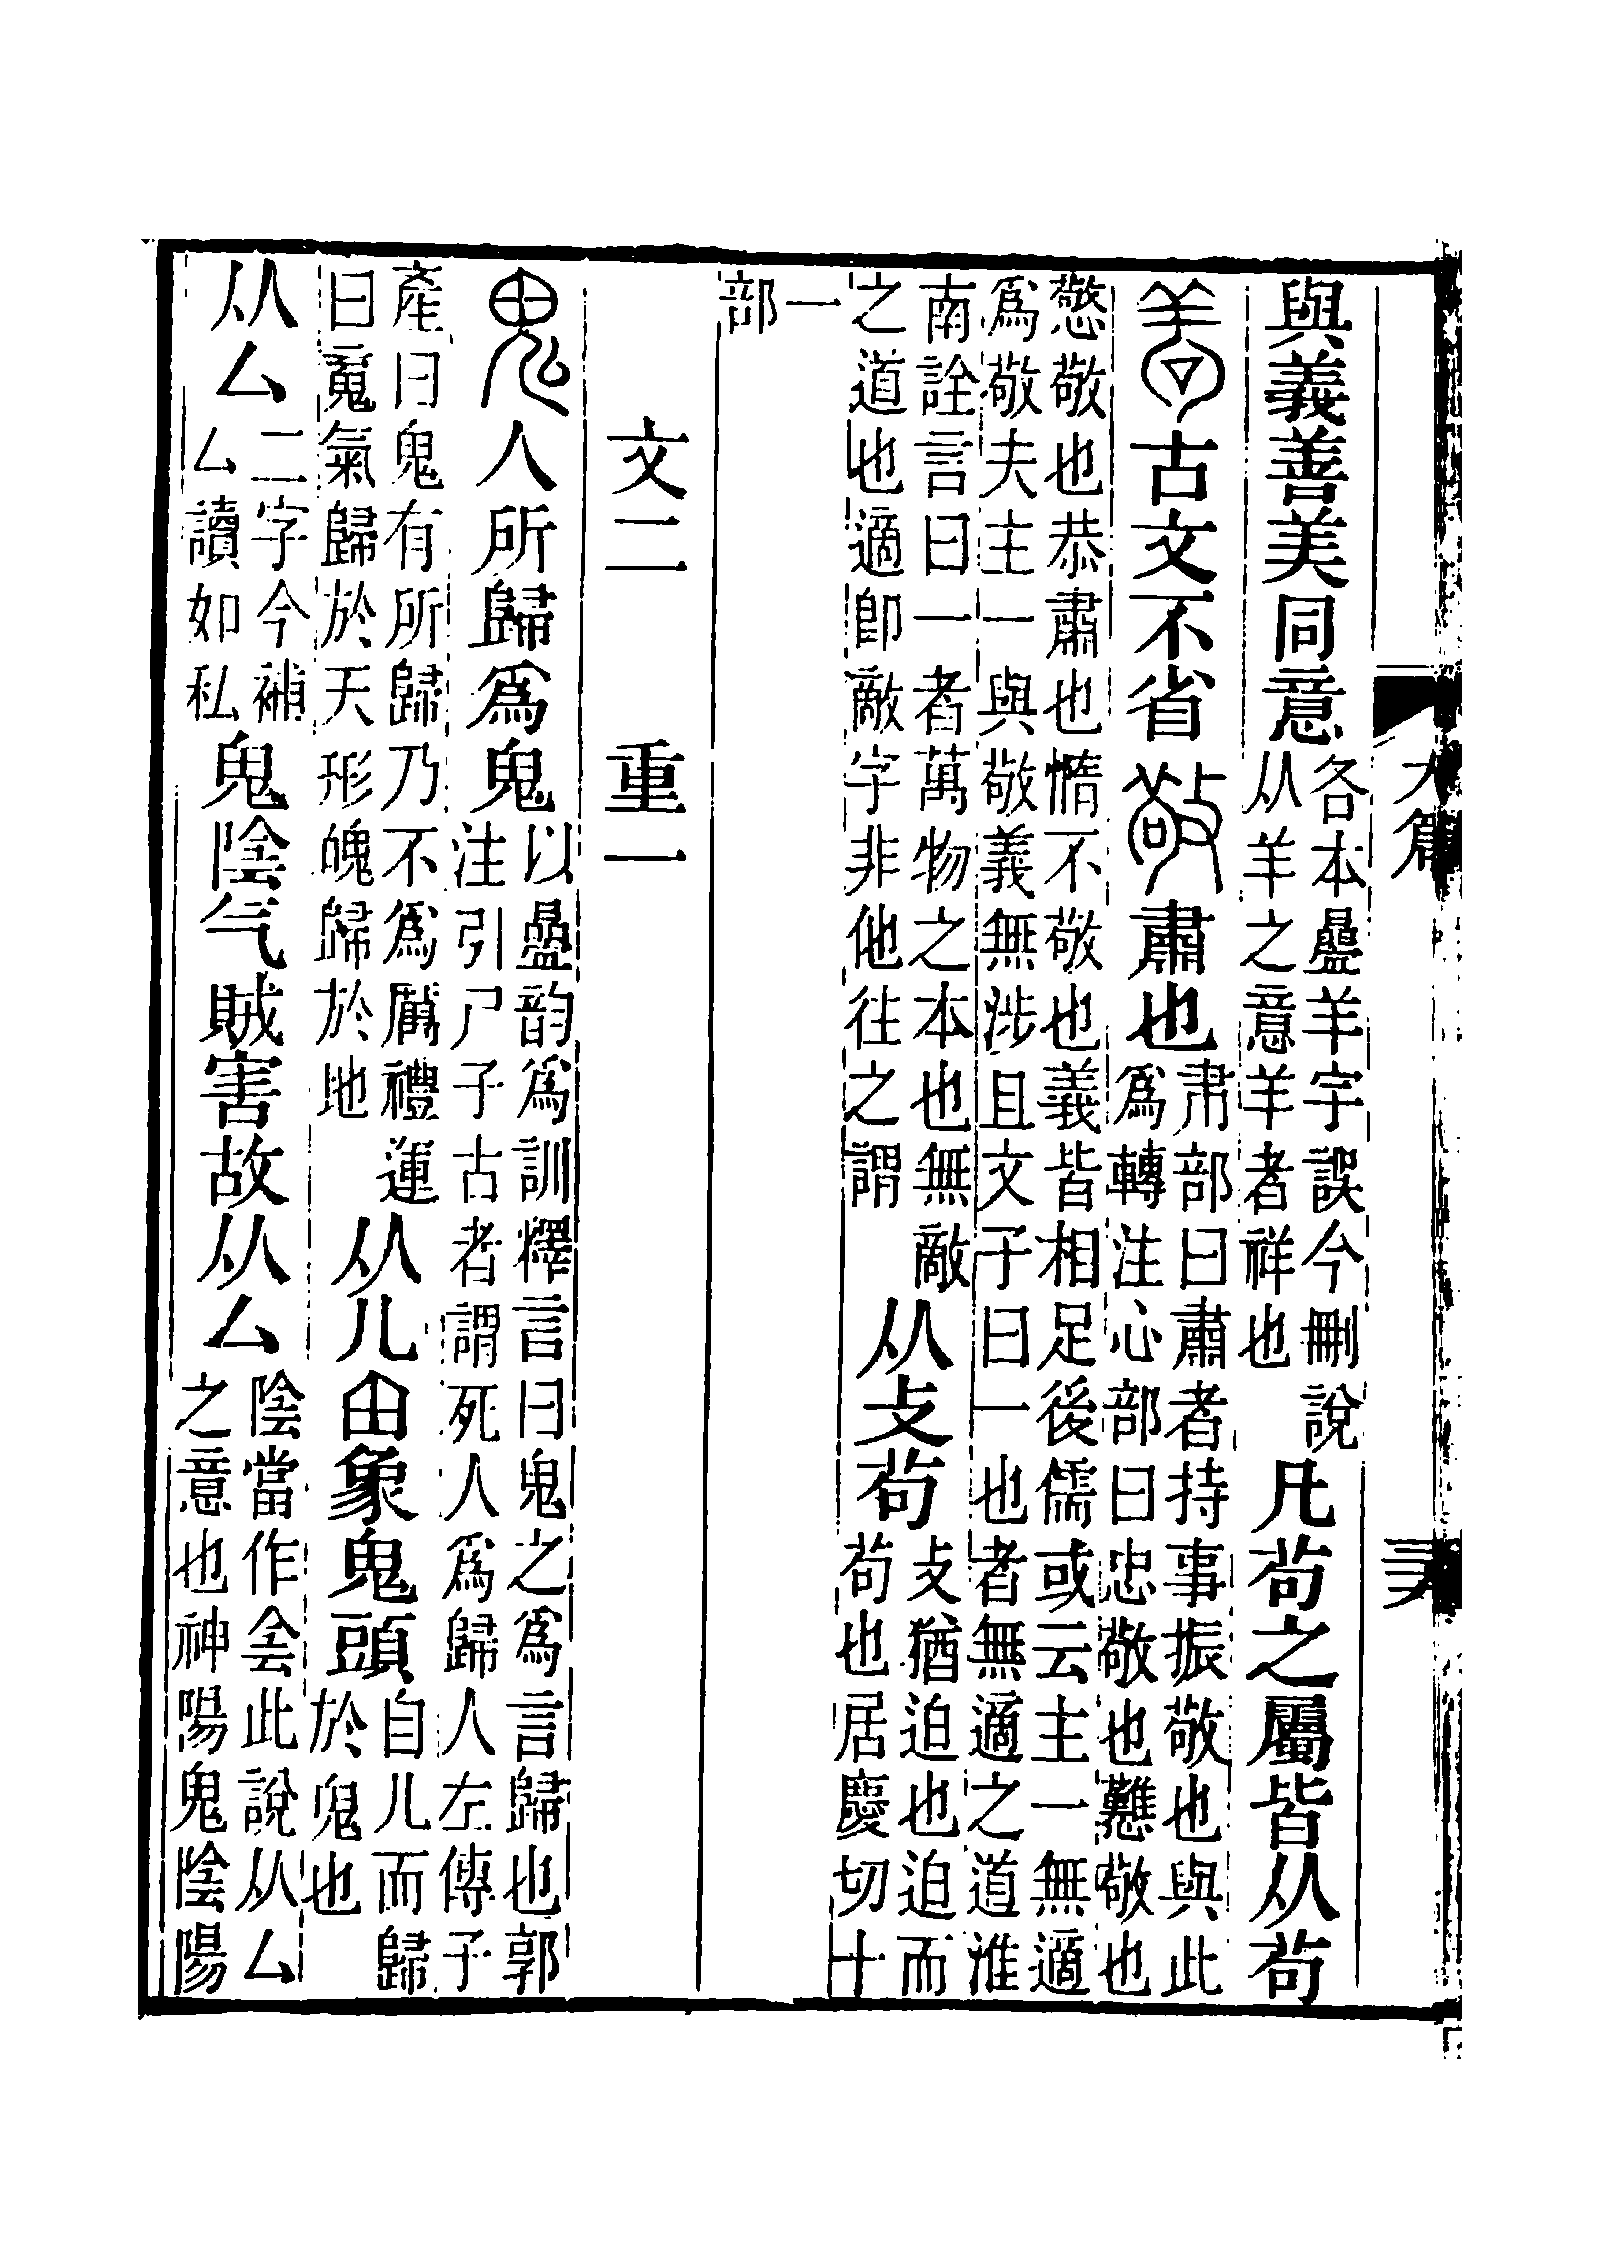 與義善美同意各本疊羊字誤今刪說从羊之意羊者祥也凡茍之屬皆从茍
古文不省敬肅也肃部曰肅者持事振敬也與此爲轉注心部曰忠敬也戁敬也
憼敬也恭肅也惰不敬也義皆相足後儒或云主一無適爲敬夫主一與敬義無涉且文子曰一也者無適之道淮
南詮言曰一者萬物之本也無敵之道也適卽敵字非他往之謂从攴茍攴猶迫也迫而茍也居慶切十
一部
文二　重一
鬼人所歸爲鬼以疊韵爲訓釋言曰鬼之爲言歸也郭注引尸子古者謂死人爲歸人左傳子
產曰鬼有所歸乃不爲厲禮運曰䰟氣歸於天形魄歸於地从儿甶象鬼頭自儿而歸於鬼也
从厶二字今補厶讀如私鬼陰气賊害故从厶陰當作侌此說从厶之意也神陽鬼陰陽